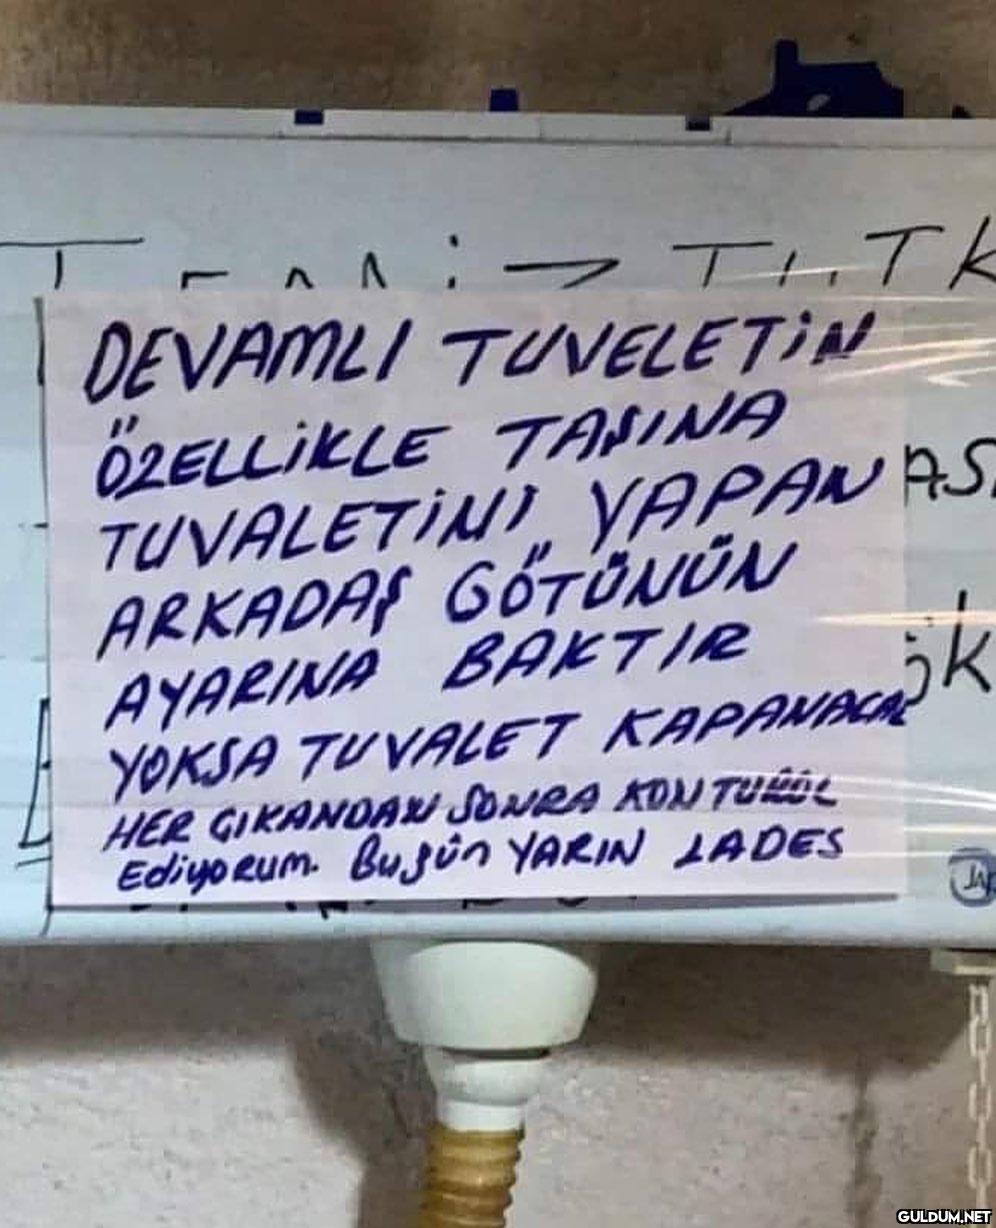 TEMİZ TUTK
DEVAMLI TUVELETİN
ÖZELLİKLE TAŞINA
TUVALETİNİ YAPAN
ARKADAŞ GÖTÜNÜN
AYARINA BAKTIR
YOKSA TUVALET KAPANACAK
HER ÇIKANDAN SONRA KONTURÖL
EdiyoRum. Bugün YARIN LADES
AS
ök
GULDUM.NET